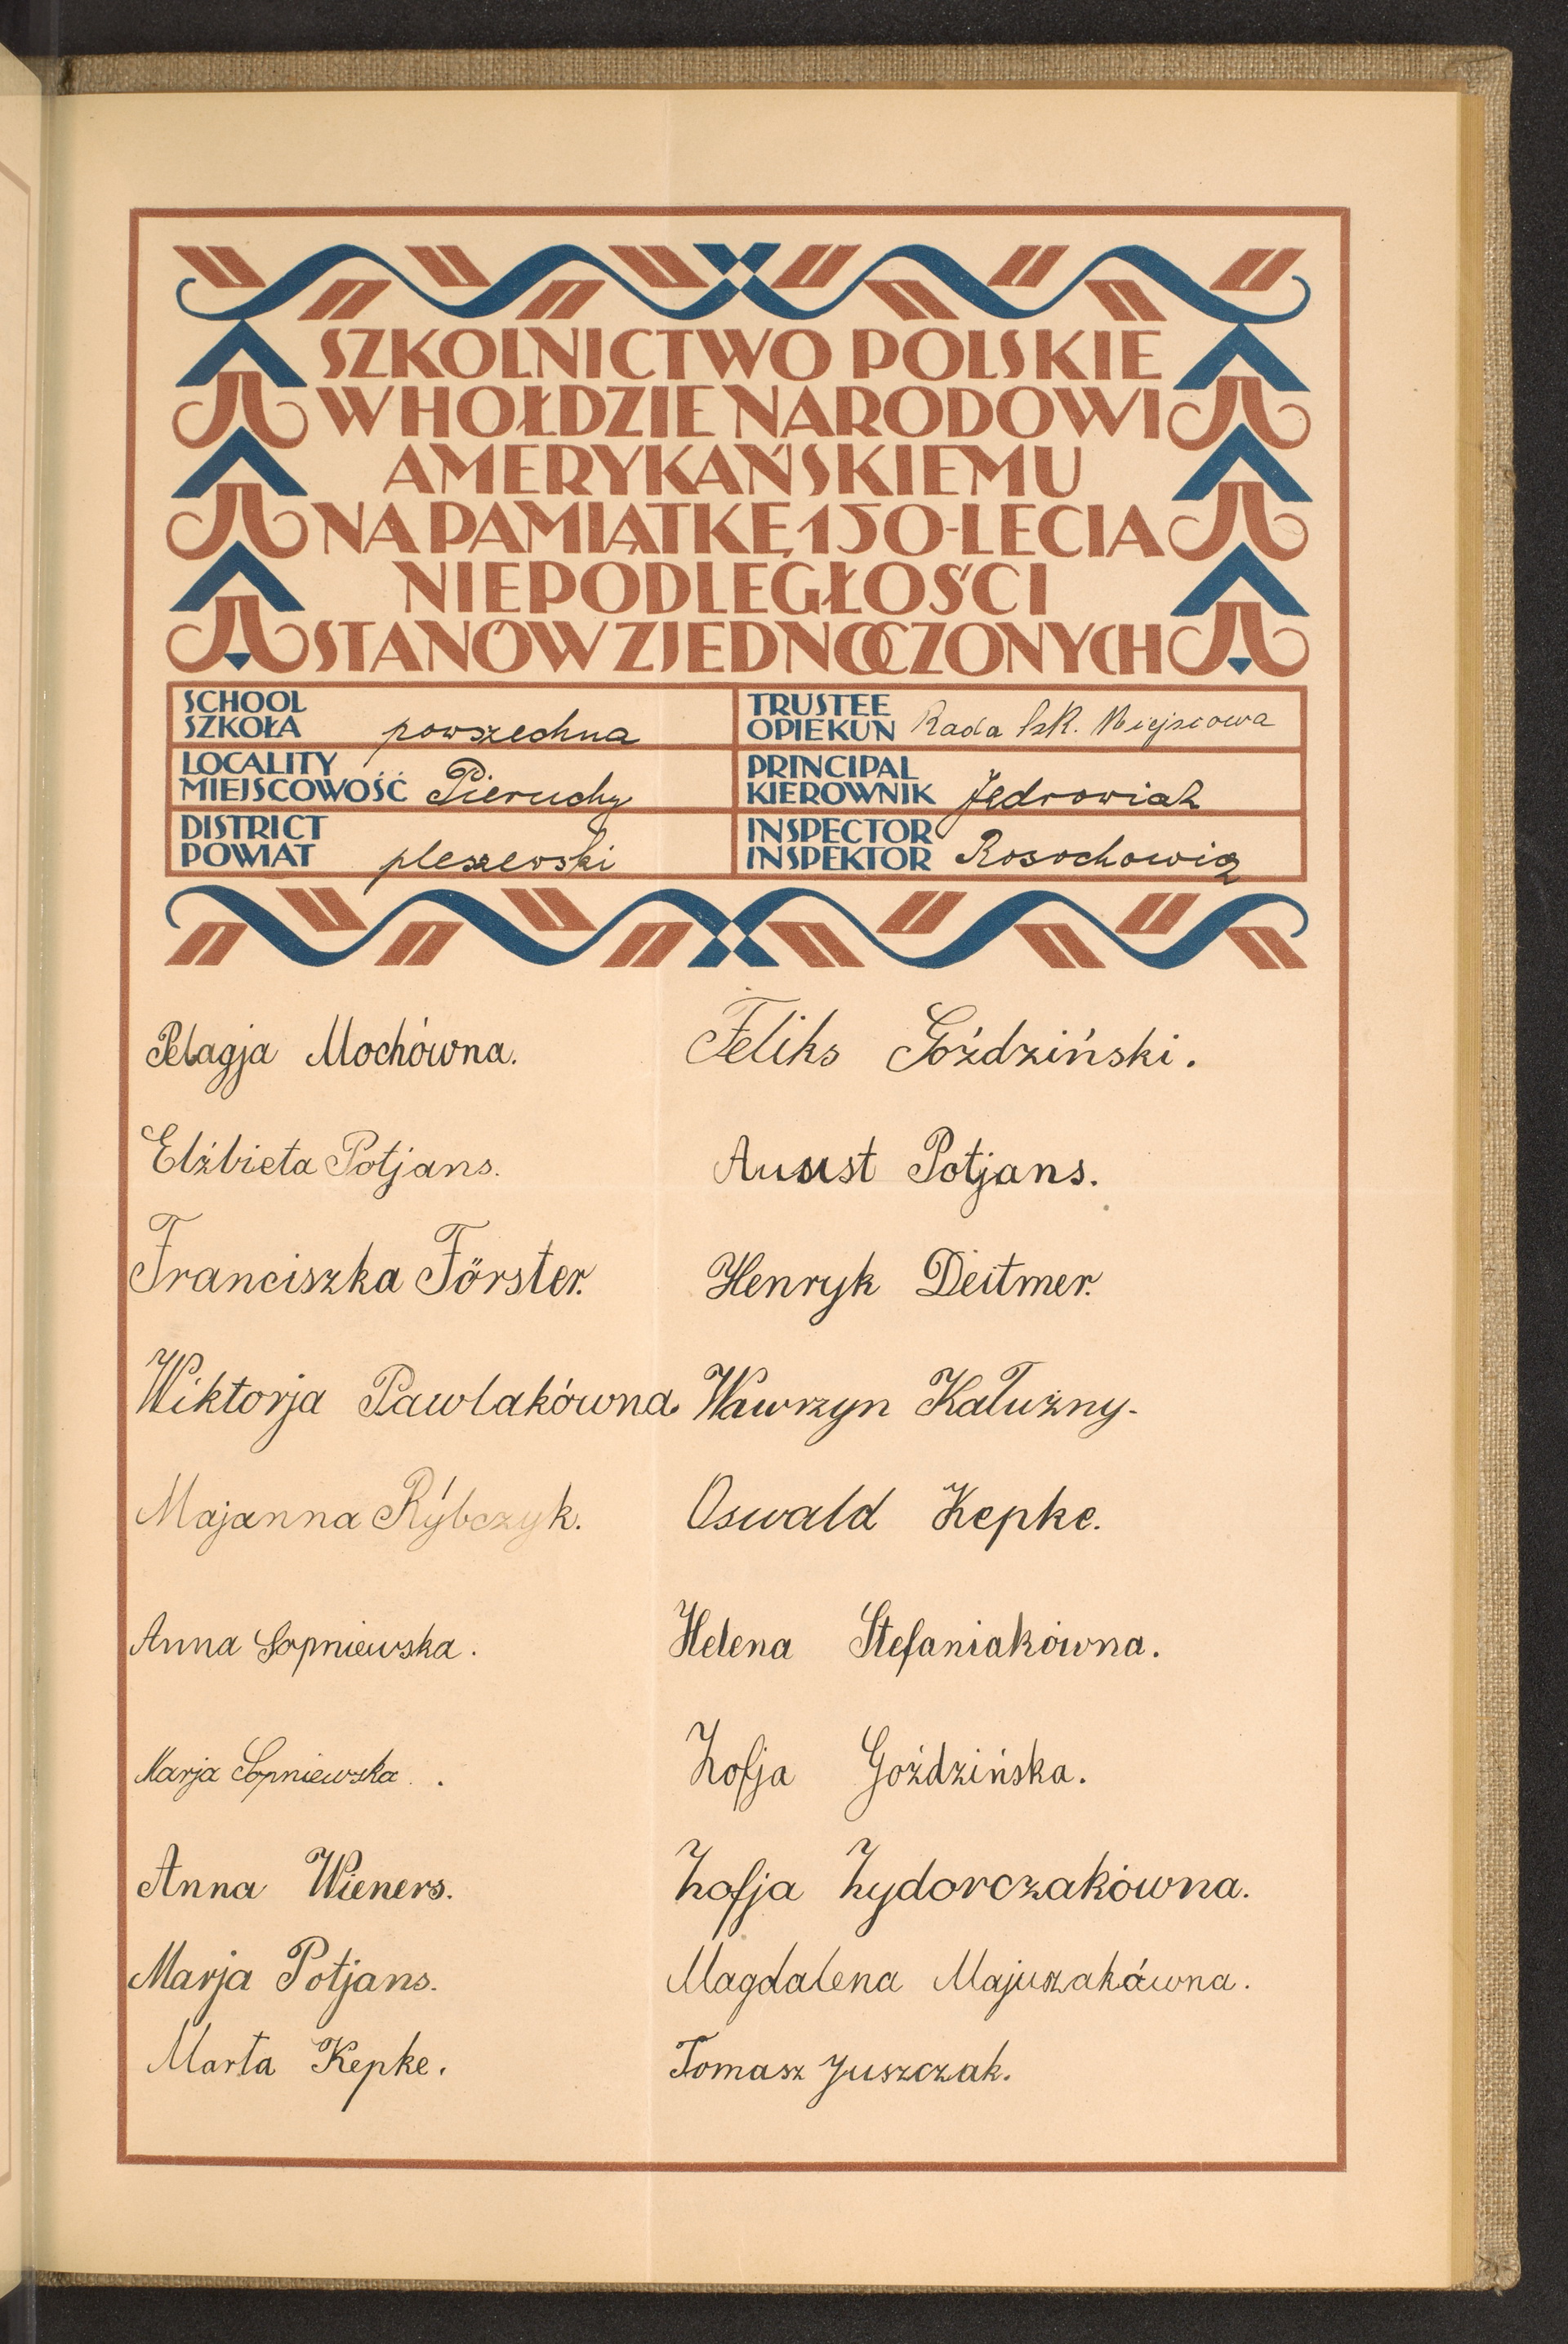 SZKOLNICTWO POLSKIE
W HOŁDZIE NARODOWI
AMERYKAŃSKIEMU
NA PAMIĄTKĘ 150-LECIA
NIEPODLEGŁOŚCI
STANÓW ZJEDNOCZONYCH
SCHOOL
SZKOŁA powszechna
TRUSTEE
OPIEKUN Rada Szk. Miejscowa
LOCALITY
MIEJSCOWOŚĆ Pieruchy
PRINCIPAL
KIEROWNIK Jędrowiak
DISTRICT
POWIAT pleszewski
INSPECTOR
INSPEKTOR Rosochowicz
Pelagja Mochówna.
Elżbieta Potjans.
Franciszka Förster.
Wiktorja Pawlakówna
Majanna Rýbczyk.
Anna Sopniewska.
Marja Sopniewska.
Anna Wieners.
Marja Potjans.
Marta Kepke.
Feliks Goździński.
August Potjans.
Henryk Deitmer.
Wawrzyn Kałużny.
Oswald Kepke.
Helena Stefaniakówna.
Zofja Goździńska.
Zofja Zydorczakówna.
Magdalena Majuszakówna.
Tomasz Juszczak.